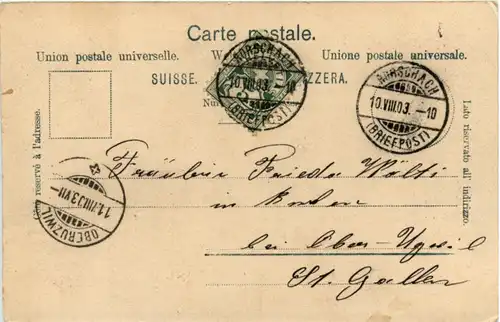 Carte postale.
Union postale universelle. W Unione postale universale.
SUISSE. ZZERA.
Nur
RORSCHACH
10.VIII.03.-10
(BRIEFPOST)
RORSCHACH
10.VIII.03.-10
(BRIEFPOST)
Côté réservé à l'adresse.
Lato riservato all' indirizzo.
11.VIII.03.VII-
OBERUZWIL
Fräulein Frieda Wälti
in
bei Ober-Uzwil
St. Gallen